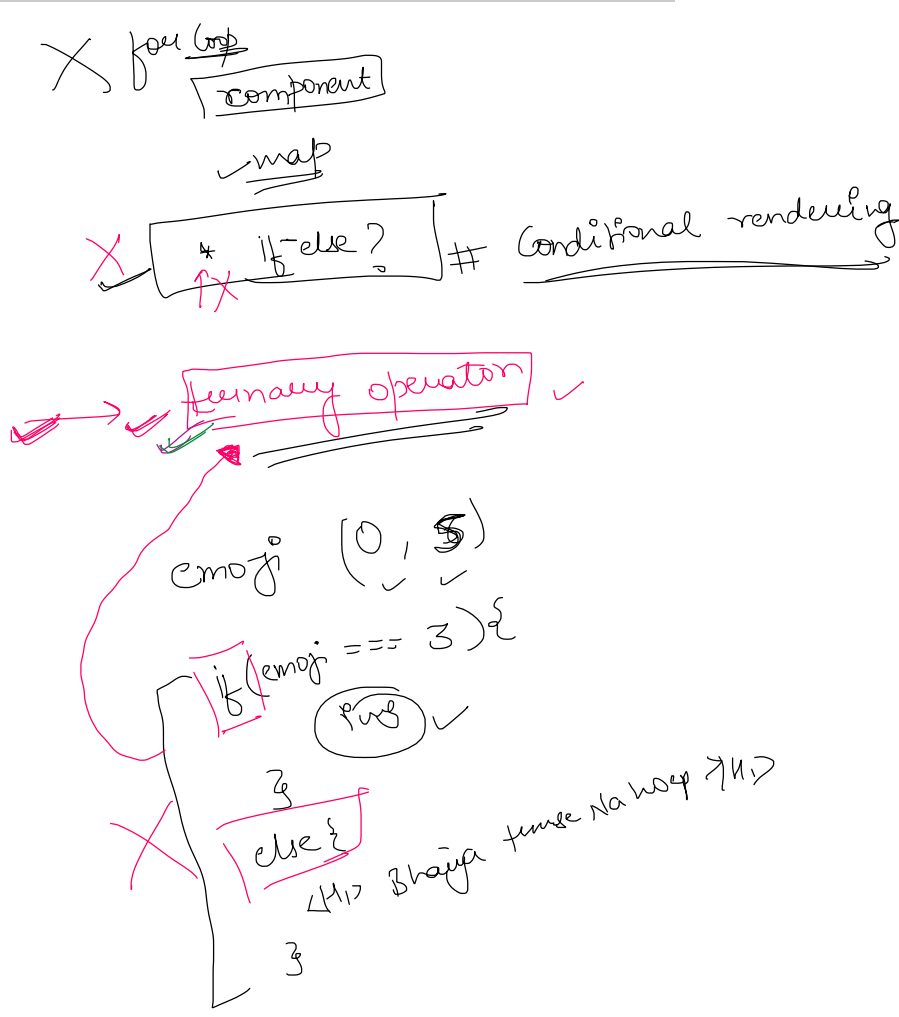 X for loop
component
✓ map
X ✓ * if-else? # Conditional rendering
↑X
→ ✓ ternary operator ✓
emoji (0, 5)
if(emoji === 3){
✓
}
else{
<H1> Bhaiya tumse Na hoep </H1>
}